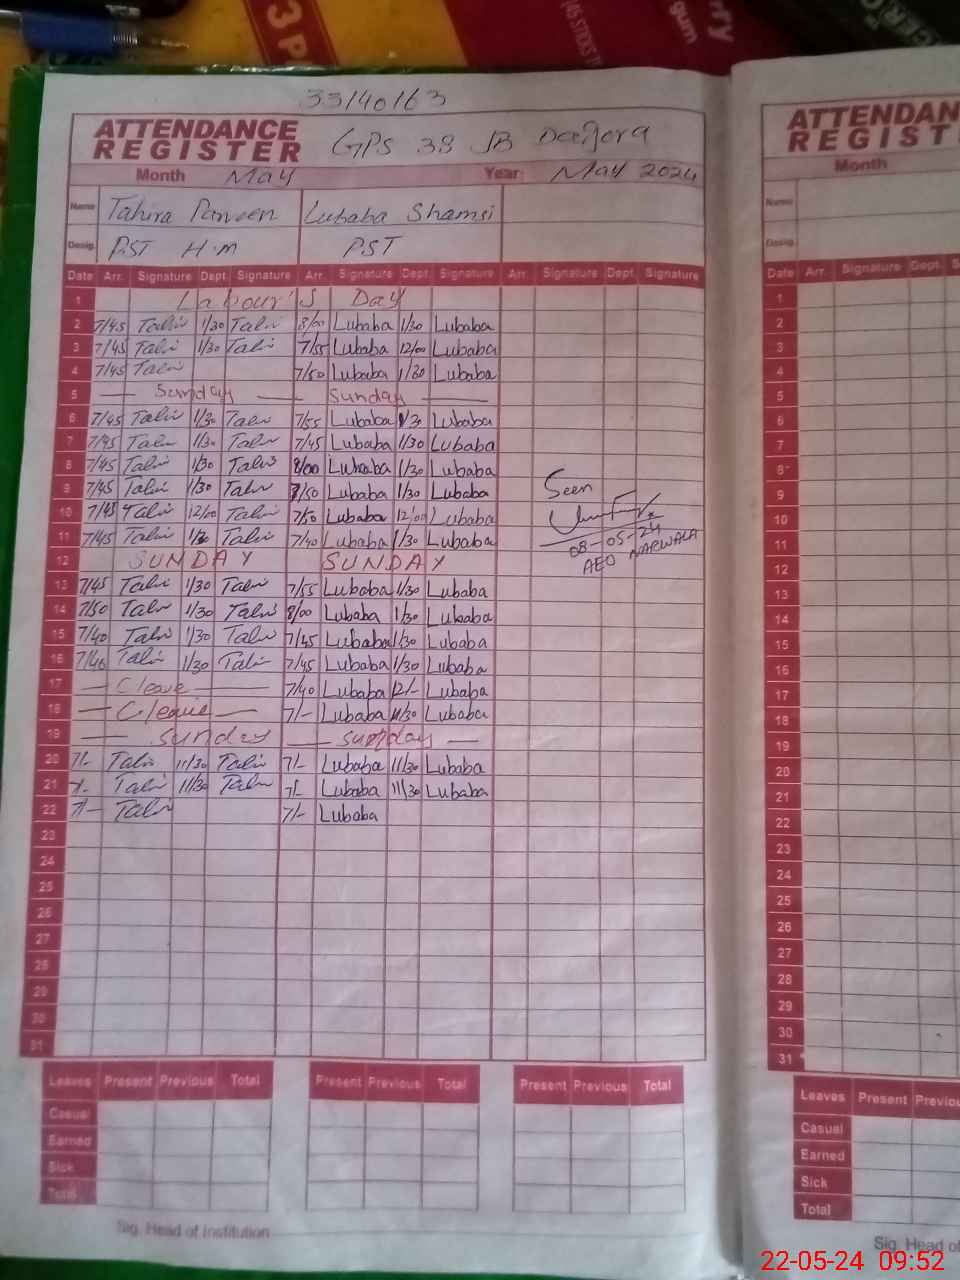 3 P
(45 STICKS
rry
gum
CER
33140163
ATTENDANCE
REGISTER
GPS 38 JB
Month May Year May 2024
Name Tahira Parveen Lubaba Shamsi
Desig. PST H.M PST
Date Arr. Signature Dept. Signature Arr. Signature Dept. Signature Arr. Signature Dept. Signature
1 Labour's Day
2 7/45 Tahir 1/30 Tahir 8/00 Lubaba 1/30 Lubaba
3 7/45 Tahir 1/30 Tahir 7/55 Lubaba 12/00 Lubaba
4 7/45 Tahir 7/50 Lubaba 1/30 Lubaba
5 — Sunday — Sunday —
6 7/45 Tahir 1/30 Tahir 7/55 Lubaba 1/30 Lubaba
7 7/45 Tahir 1/30 Tahir 7/45 Lubaba 1/30 Lubaba
8 7/45 Tahir 1/30 Tahir 8/00 Lubaba 1/30 Lubaba
9 7/45 Tahir 1/30 Tahir 7/50 Lubaba 1/30 Lubaba
10 7/45 Tahir 12/00 Tahir 7/50 Lubaba 12/00 Lubaba
11 7/45 Tahir 1/30 Tahir 7/40 Lubaba 1/30 Lubaba
Seen
08-05-24
AEO NARWALA
12 SUNDAY SUNDAY
13 7/45 Tahir 1/30 Tahir 7/55 Lubaba 1/30 Lubaba
14 7/50 Tahir 1/30 Tahir 8/00 Lubaba 1/30 Lubaba
15 7/40 Tahir 1/30 Tahir 7/45 Lubaba 1/30 Lubaba
16 7/40 Tahir 1/30 Tahir 7/45 Lubaba 1/30 Lubaba
17 — C leave — 7/40 Lubaba 12/- Lubaba
18 — C leave — 7/- Lubaba 11/30 Lubaba
19 — Sunday — Sunday —
20 7/- Tahir 11/30 Tahir 7/- Lubaba 11/30 Lubaba
21 7/- Tahir 11/30 Tahir 7/- Lubaba 11/30 Lubaba
22 7/- Tahir 7/- Lubaba
23
24
25
26
27
28
29
30
31
Leaves Present Previous Total Present Previous Total Present Previous Total
Casual
Earned
Sick
Total
Sig. Head of Institution
ATTENDAN
REGIST
Month
Name
Desig.
Date Arr. Signature Dept. S
1
2
3
4
5
6
7
8
9
10
11
12
13
14
15
16
17
18
19
20
21
22
23
24
25
26
27
28
29
30
31
Leaves Present Previou
Casual
Earned
Sick
Total
Sig. Head of
22-05-24 09:52